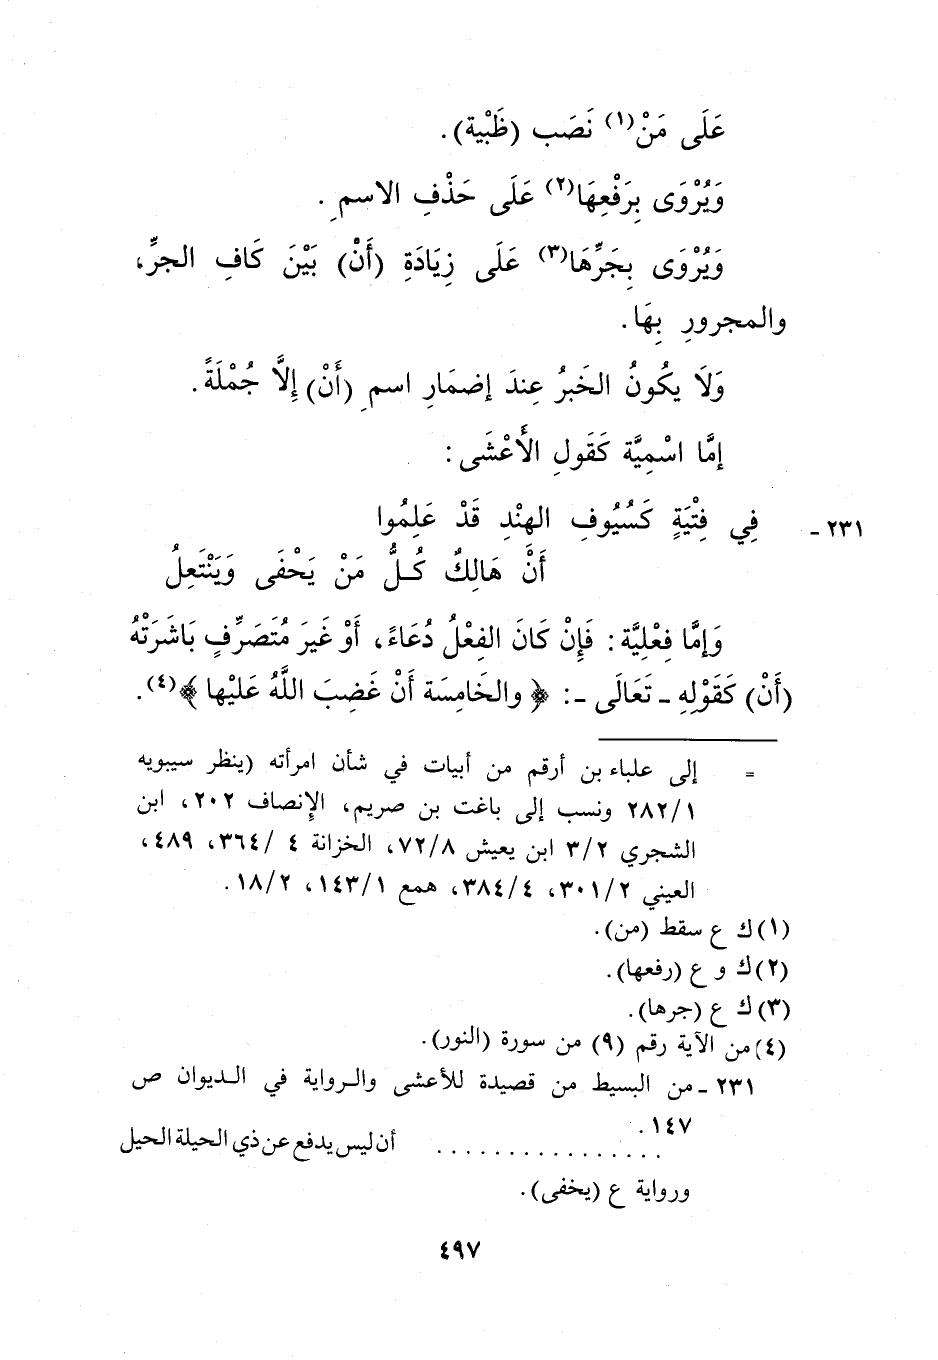 عَلَى مَنْ(١) نَصَب (ظَبْية).
وَيُرْوَى بِرَفْعِهَا(٢) عَلَى حَذْفِ الاسمِ.
وَيُرْوَى بِجَرِّهَا(٣) عَلَى زِيَادَةِ (أَنْ) بَيْنَ كَافِ الجرِّ،
والمجرورِ بِهَا.
وَلَا يكُونُ الخَبرُ عِندَ إضمَارِ اسمِ (أَنْ) إلاَّ جُمْلَةً.
إمَّا اسْمِيَّة كَقَولِ الأَعْشَى:
٢٣١ - فِي فِتْيَةٍ كَسُيُوفِ الهنْدِ قَدْ عَلِمُوا
أَنْ هَالِكٌ كُلُّ مَنْ يَحْفَى وَيَنْتَعِلُ
وَإمَّا فِعْلِيَّة: فَإِنْ كَانَ الفِعْلُ دُعَاءً، أَوْ غَيرَ مُتَصَرِّفٍ بَاشَرَتْهُ
(أَنْ) كَقَوْلِهِ - تَعَالَى -: ﴿والخَامِسَة أَنْ غَضِبَ اللَّهُ عَلَيْها﴾(٤).
= إلى علباء بن أرقم من أبيات في شأن امرأته (ينظر سيبويه
٢٨٢/١ ونسب إلى باغت بن صريم، الإنصاف ٢٠٢، ابن
الشجري ٣/٢ ابن يعيش ٧٢/٨، الخزانة ٤ /٣٦٤، ٤٨٩،
العيني ٣٠١/٢، ٣٨٤/٤، همع ١٤٣/١، ١٨/٢.
(١) ك ع سقط (من).
(٢) ك و ع (رفعها).
(٣) ك ع (جرها).
(٤) من الآية رقم (٩) من سورة (النور).
٢٣١ - من البسيط من قصيدة للأعشى والرواية في الديوان ص
١٤٧.
. . . . . . . . . . . . . . . . أن ليس يدفع عن ذي الحيلة الحيل
ورواية ع (يخفى).
٤٩٧